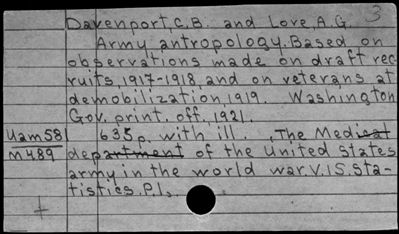 3
Davenport, C.B. and Love, A.G.
Army antropology. Based on
observations made on draft rec-
ruits, 1917-1918, and on veterans at
demobilization, 1919. Washington
Gov. print. off., 1921.
Uam58 635p. with ill. The Medical
M489 department of the United States
army in the world war. V.15. Sta-
tistics. P.1.